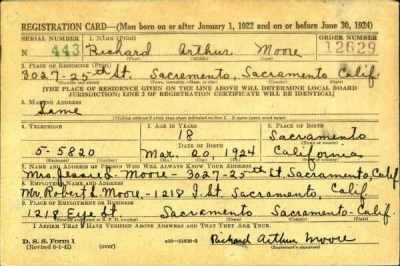 REGISTRATION CARD—(Men born on or after January 1, 1922 and on or before June 30, 1924)
SERIAL NUMBER 1. NAME (Print) ORDER NUMBER
N 443 Richard Arthur Moore 12629
2. PLACE OF RESIDENCE (Print)
3027-25th St. Sacramento, Sacramento Calif.
[THE PLACE OF RESIDENCE GIVEN ON THE LINE ABOVE WILL DETERMINE LOCAL BOARD
JURISDICTION; LINE 2 OF REGISTRATION CERTIFICATE WILL BE IDENTICAL]
3. MAILING ADDRESS
Same
4. TELEPHONE 5. AGE IN YEARS 6. PLACE OF BIRTH
18 Sacramento
DATE OF BIRTH
5-5820 Mar. 20, 1924 California
7. NAME AND ADDRESS OF PERSON WHO WILL ALWAYS KNOW YOUR ADDRESS
Mrs. Jessie Moore-3027-25th St, Sacramento, Calif
8. EMPLOYER'S NAME AND ADDRESS
Mr. Robert Moore,-1218 I St. Sacramento, Calif
9. PLACE OF EMPLOYMENT OR BUSINESS
1218 Eye St Sacramento Sacramento-Calif.
I AFFIRM THAT I HAVE VERIFIED ABOVE ANSWERS AND THAT THEY ARE TRUE.
D. S. S. Form 1
(Revised 6-1-42) (over) Richard Arthur Moore